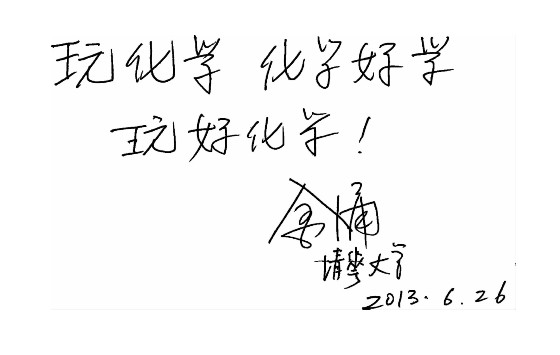 玩化学 化学好学
玩好化学!
金涌
清華大学
2013.6.26